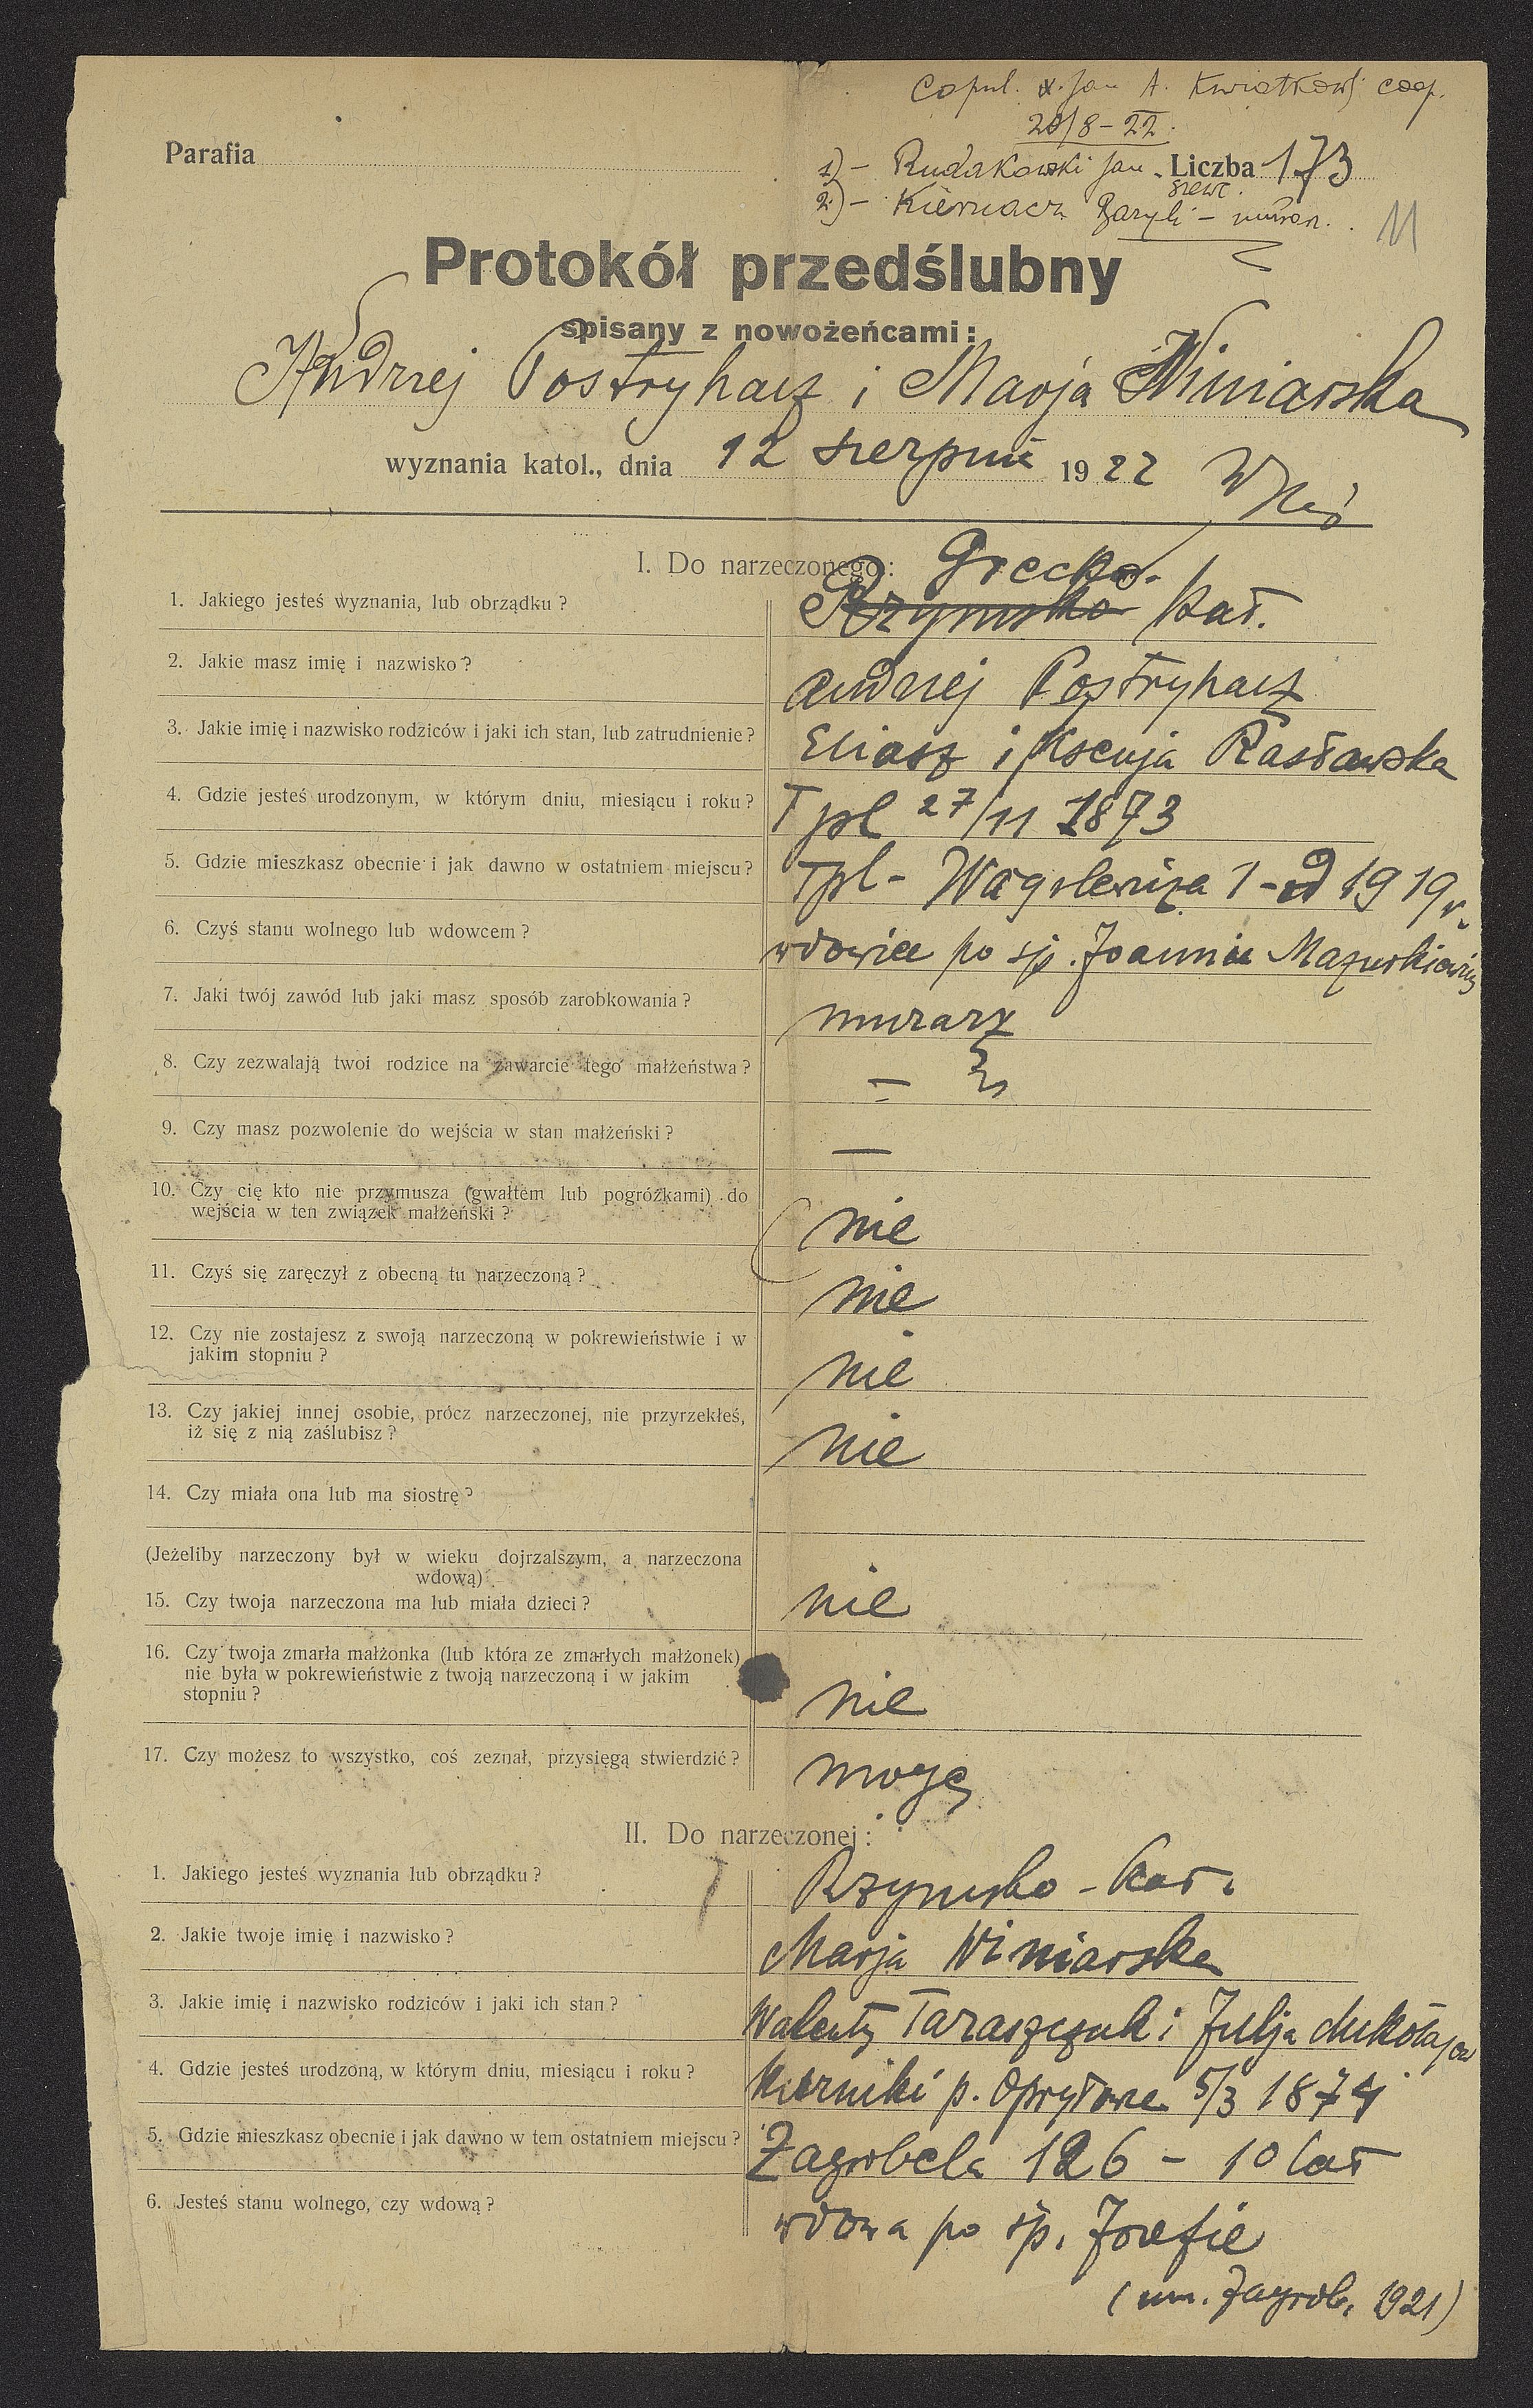 Copul. x. Jan A. Kwiatkowski coop.
20/8 - 22.
Parafia
1) - Rudakowski Jan szewc.
Liczba 173
2) - Kiernacz Bazyli - murarz.
11
Protokół przedślubny
spisany z nowożeńcami:
Andrzej Postryhacz i Marja Winiarska
wyznania katol., dnia 12 sierpnia 1922
I. Do narzeczonego:
1. Jakiego jesteś wyznania, lub obrządku?
Grecko-
Rzymsko kat.
2. Jakie masz imię i nazwisko?
Andrzej Postryhacz
3. Jakie imię i nazwisko rodziców i jaki ich stan, lub zatrudnienie?
Eliasz i Ksenja Rasławska
4. Gdzie jesteś urodzonym, w którym dniu, miesiącu i roku?
Tpl 27/11 1873
5. Gdzie mieszkasz obecnie i jak dawno w ostatniem miejscu?
Tpl - Wagilewicza 1 - od 1919 r.
6. Czyś stanu wolnego lub wdowcem?
wdowiec po śp. Joannie Mazurkiewicz
7. Jaki twój zawód lub jaki masz sposób zarobkowania?
murarz
8. Czy zezwalają twoi rodzice na zawarcie tego małżeństwa?
—
9. Czy masz pozwolenie do wejścia w stan małżeński?
—
10. Czy cię kto nie przymusza (gwałtem lub pogróżkami) do
wejścia w ten związek małżeński?
nie
11. Czyś się zaręczył z obecną tu narzeczoną?
nie
12. Czy nie zostajesz z swoją narzeczoną w pokrewieństwie i w
jakim stopniu?
nie
13. Czy jakiej innej osobie, prócz narzeczonej, nie przyrzekłeś,
iż się z nią zaślubisz?
nie
14. Czy miała ona lub ma siostrę?
(Jeżeliby narzeczony był w wieku dojrzalszym, a narzeczona
wdową)
15. Czy twoja narzeczona ma lub miała dzieci?
nie
16. Czy twoja zmarła małżonka (lub która ze zmarłych małżonek)
nie była w pokrewieństwie z twoją narzeczoną i w jakim
stopniu?
nie
17. Czy możesz to wszystko, coś zeznał, przysięgą stwierdzić?
mogę
II. Do narzeczonej:
1. Jakiego jesteś wyznania lub obrządku?
Rzymsko - kat.
2. Jakie twoje imię i nazwisko?
Marja Winiarska
3. Jakie imię i nazwisko rodziców i jaki ich stan?
Walenty Taraszczuk i Julja Mukołajow
4. Gdzie jesteś urodzoną, w którym dniu, miesiącu i roku?
p. 5/3 1874
5. Gdzie mieszkasz obecnie i jak dawno w tem ostatniem miejscu?
Zagrobela 126 - 10 lat
6. Jesteś stanu wolnego, czy wdową?
wdowa po śp. Józefie
(um. Zagrob. 1921)